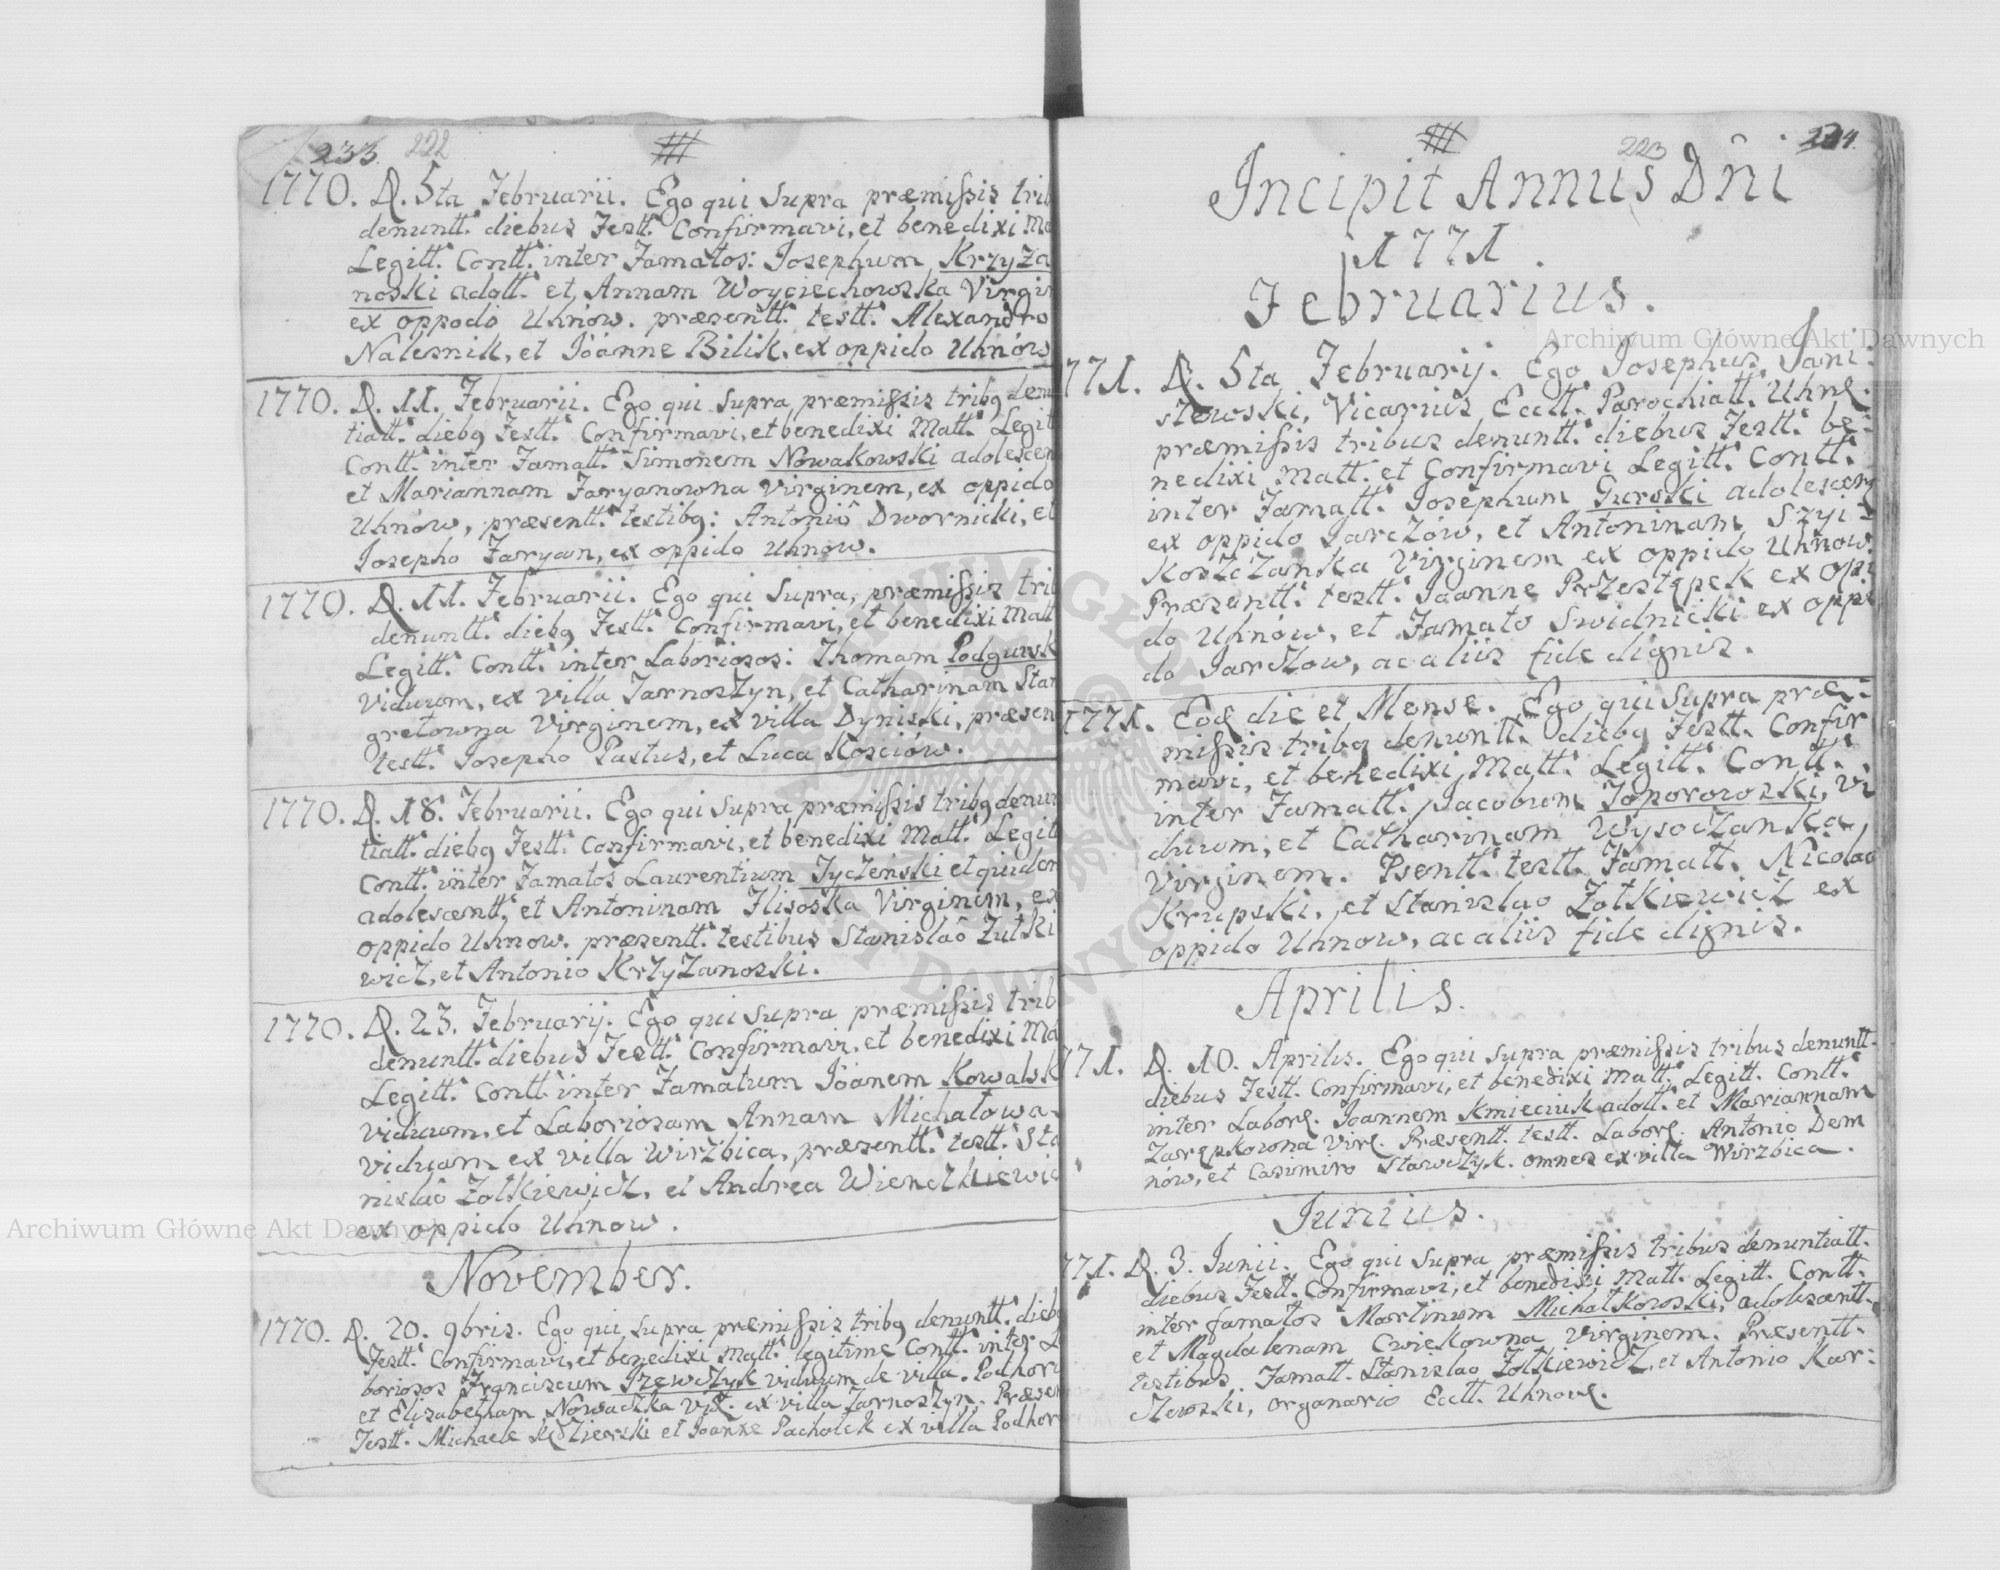 233. 222
1770. D. 5ta Februarii. Ego qui supra præmissis trib
denuntt: diebus Festt: Confirmavi, et benedixi Ma
Legitt: Contt: inter Famatos: Josephum Krzyża
noski adott: et Annam Woyciechowska Virgin
ex oppodo Uhnow. præsentt: testt: Alexandro
Nalesnik, et Joanne Bilik, ex oppido Uhnow
1770. D. 11. Februarii. Ego qui supra præmissis tribq denu
tiatt: diebq Festt: Confirmavi, et benedixi Matt: Legit
Contt: inter Famatt: Simonem Nowakowski adolescen
et Mariannam Faryanowna Virginem, ex oppido
Uhnow, præsentt: testibq: Antoniô Dwornicki, et
Josepho Faryan, ex oppido Uhnow.
1770. D. 11. Februarii. Ego qui supra, præmissis trib
denuntt: diebq Festt: Confirmavi, et benedixi Matt
Legitt: Contt: inter Laboriosos: Thomam Podgursk
Viduum, ex villa Tarnoszyn, et Catharinam Star
gretowna Virginem, ex villa Dyniski, præsen
testt: Josepho Pastus, et Luca Kosciów.
1770. D. 18. Februarii. Ego qui supra præmissis tribq denun
tiatt: diebq Festt: Confirmavi, et benedixi Matt: Legitt
Contt: inter Famatos Laurentium Tyczeński et quidem
adolescentt, et Antoninam Flisoska Virginem, ex
oppido Uhnow. præsentt: testibus Stanislaô Żutki
wicz, et Antonio Krzyżanoski.
1770. D. 23. Februarij. Ego qui supra præmissis trib
denuntt: diebus Festt: Confirmavi, et benedixi Ma
Legitt: Contt: inter Famatum Joânem Kowalsk
viduum, et Laboriosam Annam Michałowa
Viduam ex villa Wirzbica, præsentt: testt: Sta
nislaô Żołkiewicz, et Andrea Wienczkiewic
ex oppido Uhnow.
November.
1770. D. 20. 9bris. Ego qui supra præmissis tribq denuntt: diebq
Festt: Confirmavi, et benedixi Matt: legitime Contt: inter La
boriosos Franciscum Szewczyk viduum de villa Podhor
et Elizabetham Nowaczka ex villa Tarnoszyn. Præsen
Testt: Michaele et Joanne Pacholek ex villa Podhor
223 224.
Incipit Annus Dñi
1771.
Februarius.
771. D. 5ta Februarij. Ego Josephus Jani:
szewski, Vicarius Ecctt: Parochiatt: Uhnę.
præmissis tribus denuntt: diebus Festt: be:
nedixi Matt: et Confirmavi Legitt: Contt:
inter Famatt: Josephum Gurski adolescen
ex oppido Jarczów, et Antoninam Szyi:
koszczanka Virginem ex oppido Uhnow.
Præsentt: testt: Joanne Przestępek ex oppi
do Uhnow, et Famato Swidnicki ex oppi
do Jarczow, ac aliis fide dignis.
1771. Eoḍ die et Mense. Ego qui supra præ:
missis tribq denuntt: diebq Festt: Confir
mavi, et benedixi Matt: Legitt: Contt:
inter Famatt: Jacobum Toporowski, vi
duum, et Catharinam Wysoczanska
Virginem. Psentt: testt: Famatt: Nicolao
Krupski, et Stanislao Żołkiewicz ex
oppido Uhnow, ac aliis fide dignis.
Aprilis.
771. D. 10. Aprilis. Ego qui supra præmissis tribus denuntt.
diebus Festt: Confirmavi, et benedixi Matt: Legitt: Contt:
inter Laborę. Joannem Kmieciuk adott: et Mariannam
Zarępkowna Virę. Præsentt: testt: Laborę. Antonio Dem
nów, et Casimiro Stawczyk. omnes ex villa Wirzbica.
Junius.
771. D. 3. Junii. Ego qui supra præmissis tribus denuntiatt.
diebus Festt: Confirmavi, et benedixi Matt: Legitt: Contt:
inter famatos Martinum Michałkowski, adolescentt.
et Magdalenam Cwiekowna Virginem. Præsentt.
testibus Famatt: Stanislao Żołkiewicz, et Antonio Kar:
szewski, organario Ecctt: Uhnoę.
Archiwum Główne Akt Dawnych
Archiwum Główne Akt Dawnych
ARCHIWUM GŁÓWNE AKT DAWNYCH